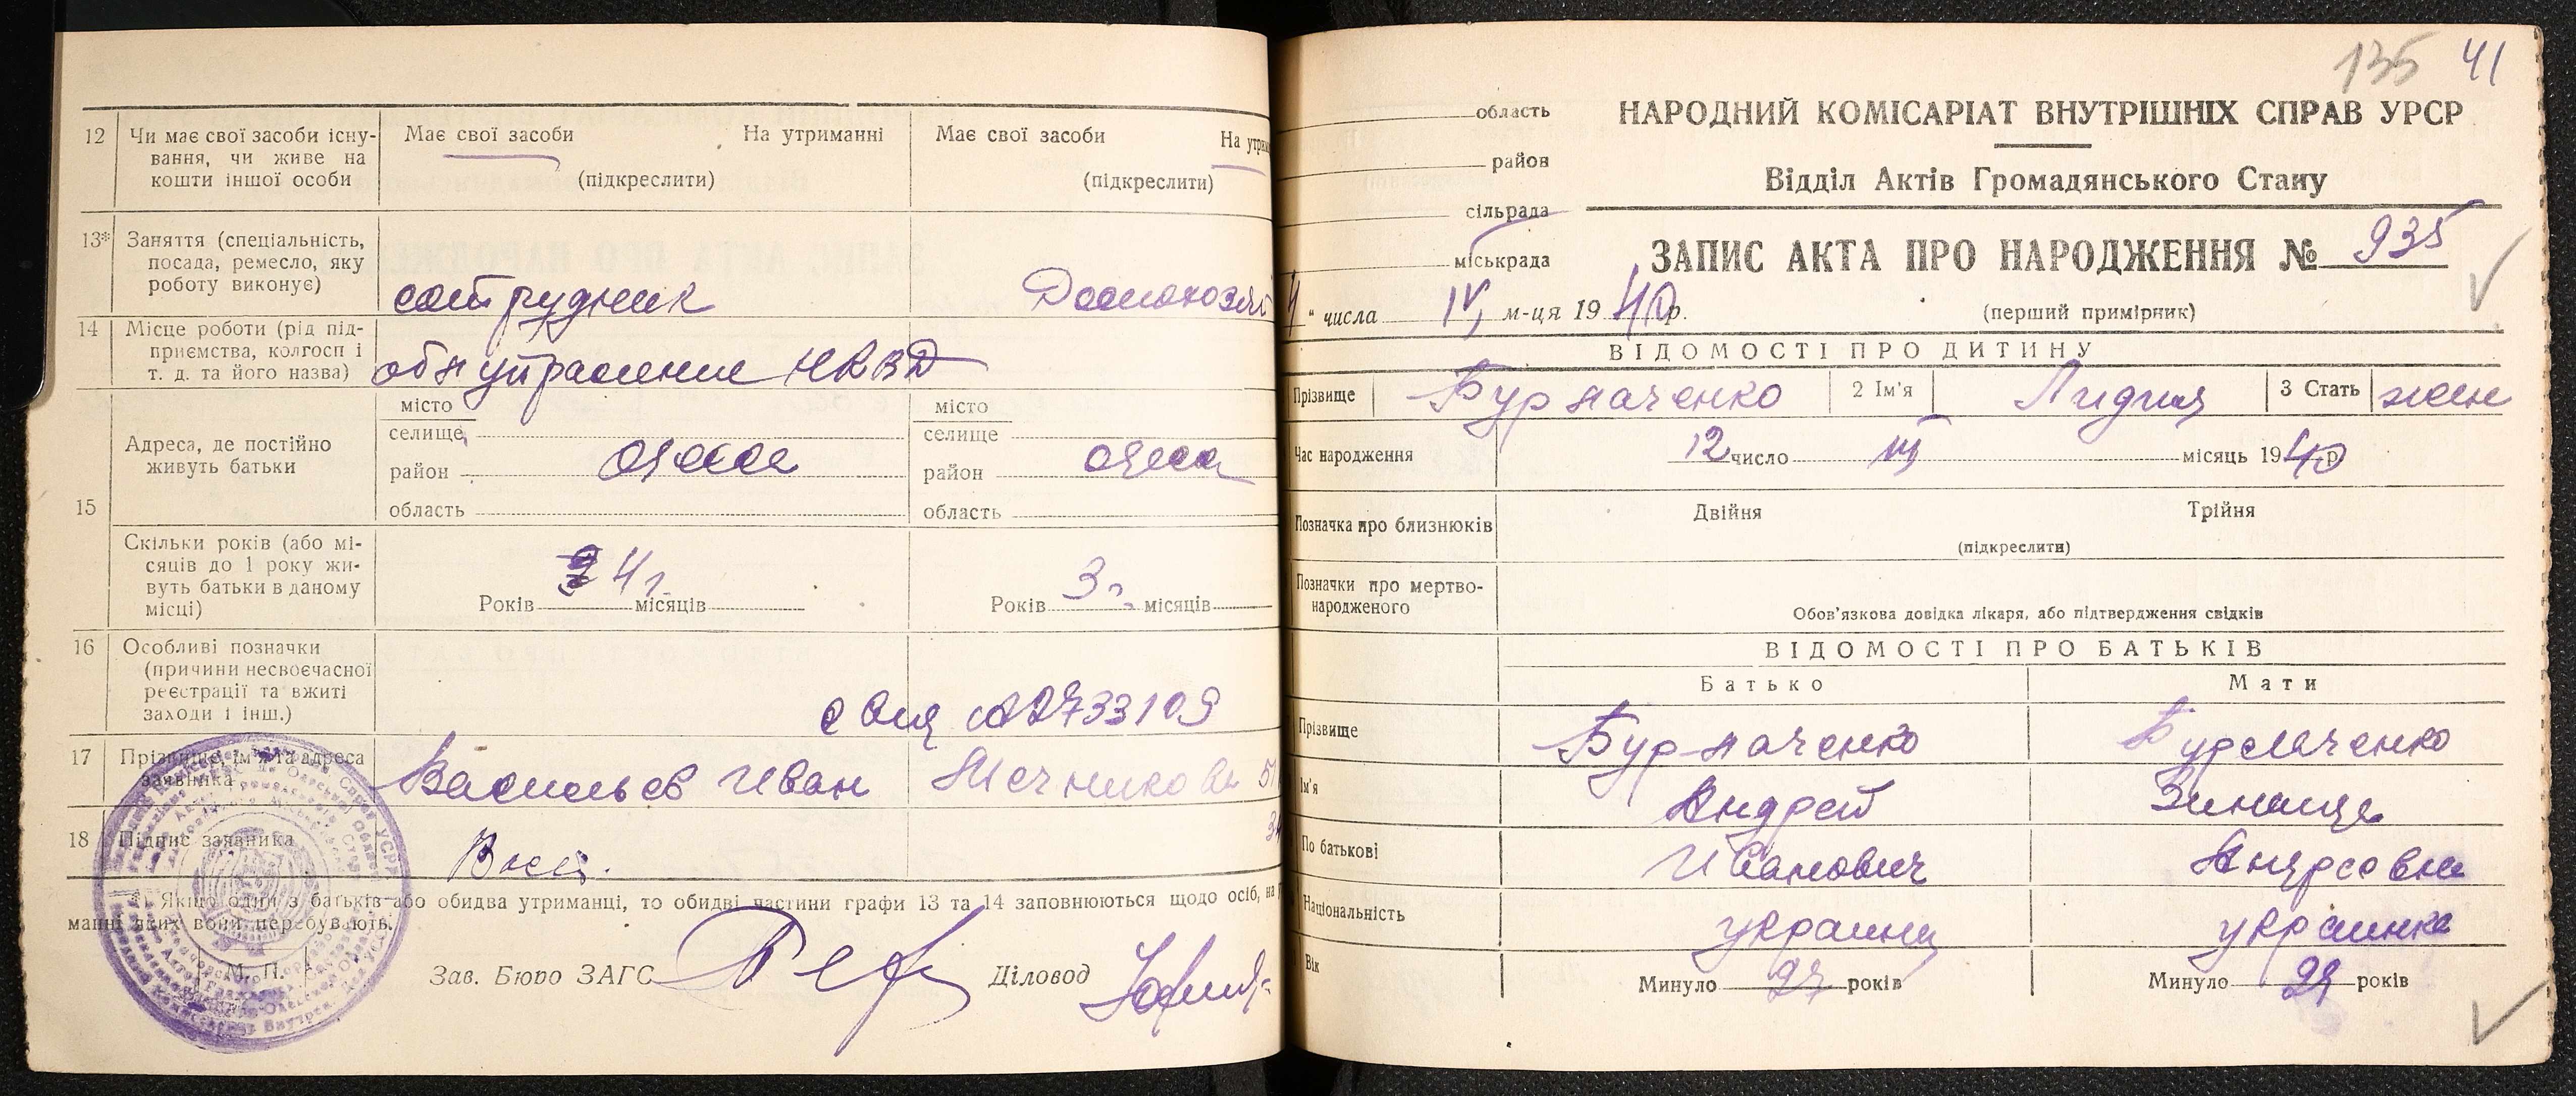 12 Чи має свої засоби існу-
вання, чи живе на
кошти іншої особи
Має свої засоби На утриманні
(підкреслити)
Має свої засоби На утрим
(підкреслити)
13* Заняття (спеціальність,
посада, ремесло, яку
роботу виконує)
сотрудник
Домохозяй
14 Місце роботи (рід під-
приємства, колгосп і
т. д. та його назва)
управление НКВД
15 Адреса, де постійно
живуть батьки
місто
селище
район
область
Одесса
місто
селище
район
область
Одесса
Скільки років (або мі-
сяців до 1 року жи-
вуть батьки в даному
місці)
Років 4 г. місяців
Років 3 г. місяців
16 Особливі позначки
(причини несвоєчасної
реєстрації та вжиті
заходи і інш.)
733109
17 Прізвище, ім'я та адреса
заявника
Васильев Иван
18 Підпис заявника
* Якщо один з батьків або обидва утриманці, то обидві частини графи 13 та 14 заповнюються щодо осіб, на
манні яких вони перебувають.
М. П.
Зав. Бюро ЗАГС
Діловод
135 41
область
район
сільрада
міськрада
НАРОДНИЙ КОМІСАРІАТ ВНУТРІШНІХ СПРАВ УРСР
Відділ Актів Громадянського Стану
ЗАПИС АКТА ПРО НАРОДЖЕННЯ № 935
4 " числа IV, м-ця 1940 р.
(перший примірник)
ВІДОМОСТІ ПРО ДИТИНУ
Прізвище Бурлаченко 2 Ім'я Лидия 3 Стать жен
Час народження 12 число III місяць 1940 р.
Позначка про близнюків Двійня Трійня
(підкреслити)
Позначки про мертво-
народженого
Обов'язкова довідка лікаря, або підтвердження свідків
ВІДОМОСТІ ПРО БАТЬКІВ
Батько Мати
Прізвище Бурлаченко Бурлаченко
Ім'я Андрей Зинаида
По батькові Иванович
Національність украинец украинка
Вік Минуло 27 років Минуло років